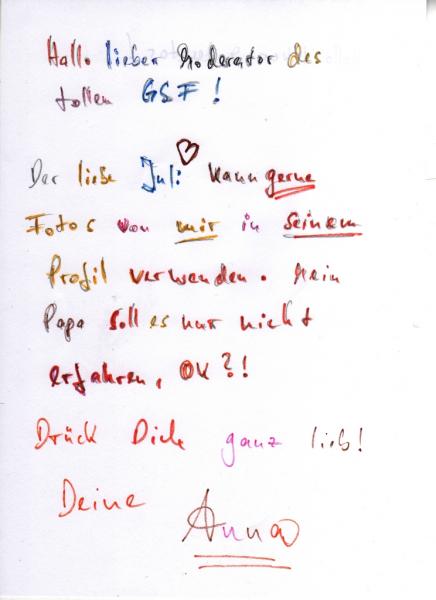 Hallo lieber Moderator des
tollen GSF!
Der liebe Juli kann gerne
Fotos von mir in seinem
Profil verwenden. Mein
Papa soll es nur nicht
erfahren, OK?!
Drück Dich ganz lieb!
Deine
Anna